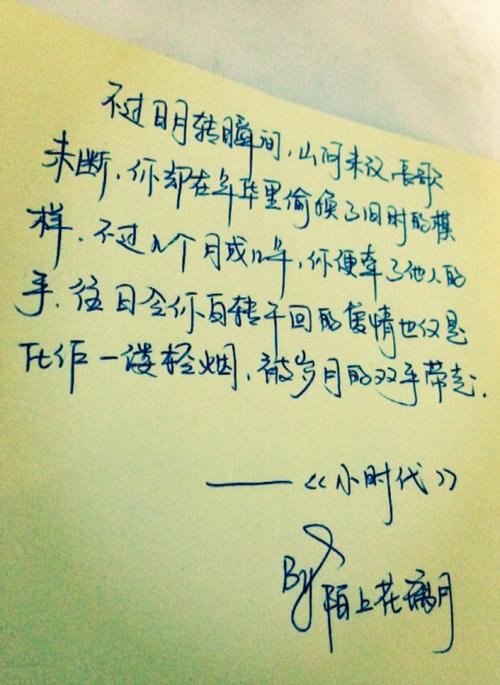 不过日月转瞬间，山河未改，长歌
未断，你却在年华里偷换了旧时的模
样．不过几个月或几年，你便牵了他人的
手．往日令你百转千回的旧情也仅是
化作一缕轻烟，被岁月的双手带走．
——《小时代》
By 陌上花痴月